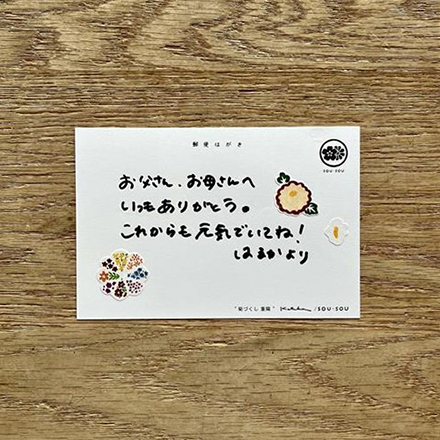 郵便はがき
SOU・SOU
お父さん、お母さんへ
いつもありがとう。
これからも元気でいてね！
はるかより
"菊づくし 重陽"
/SOU・SOU